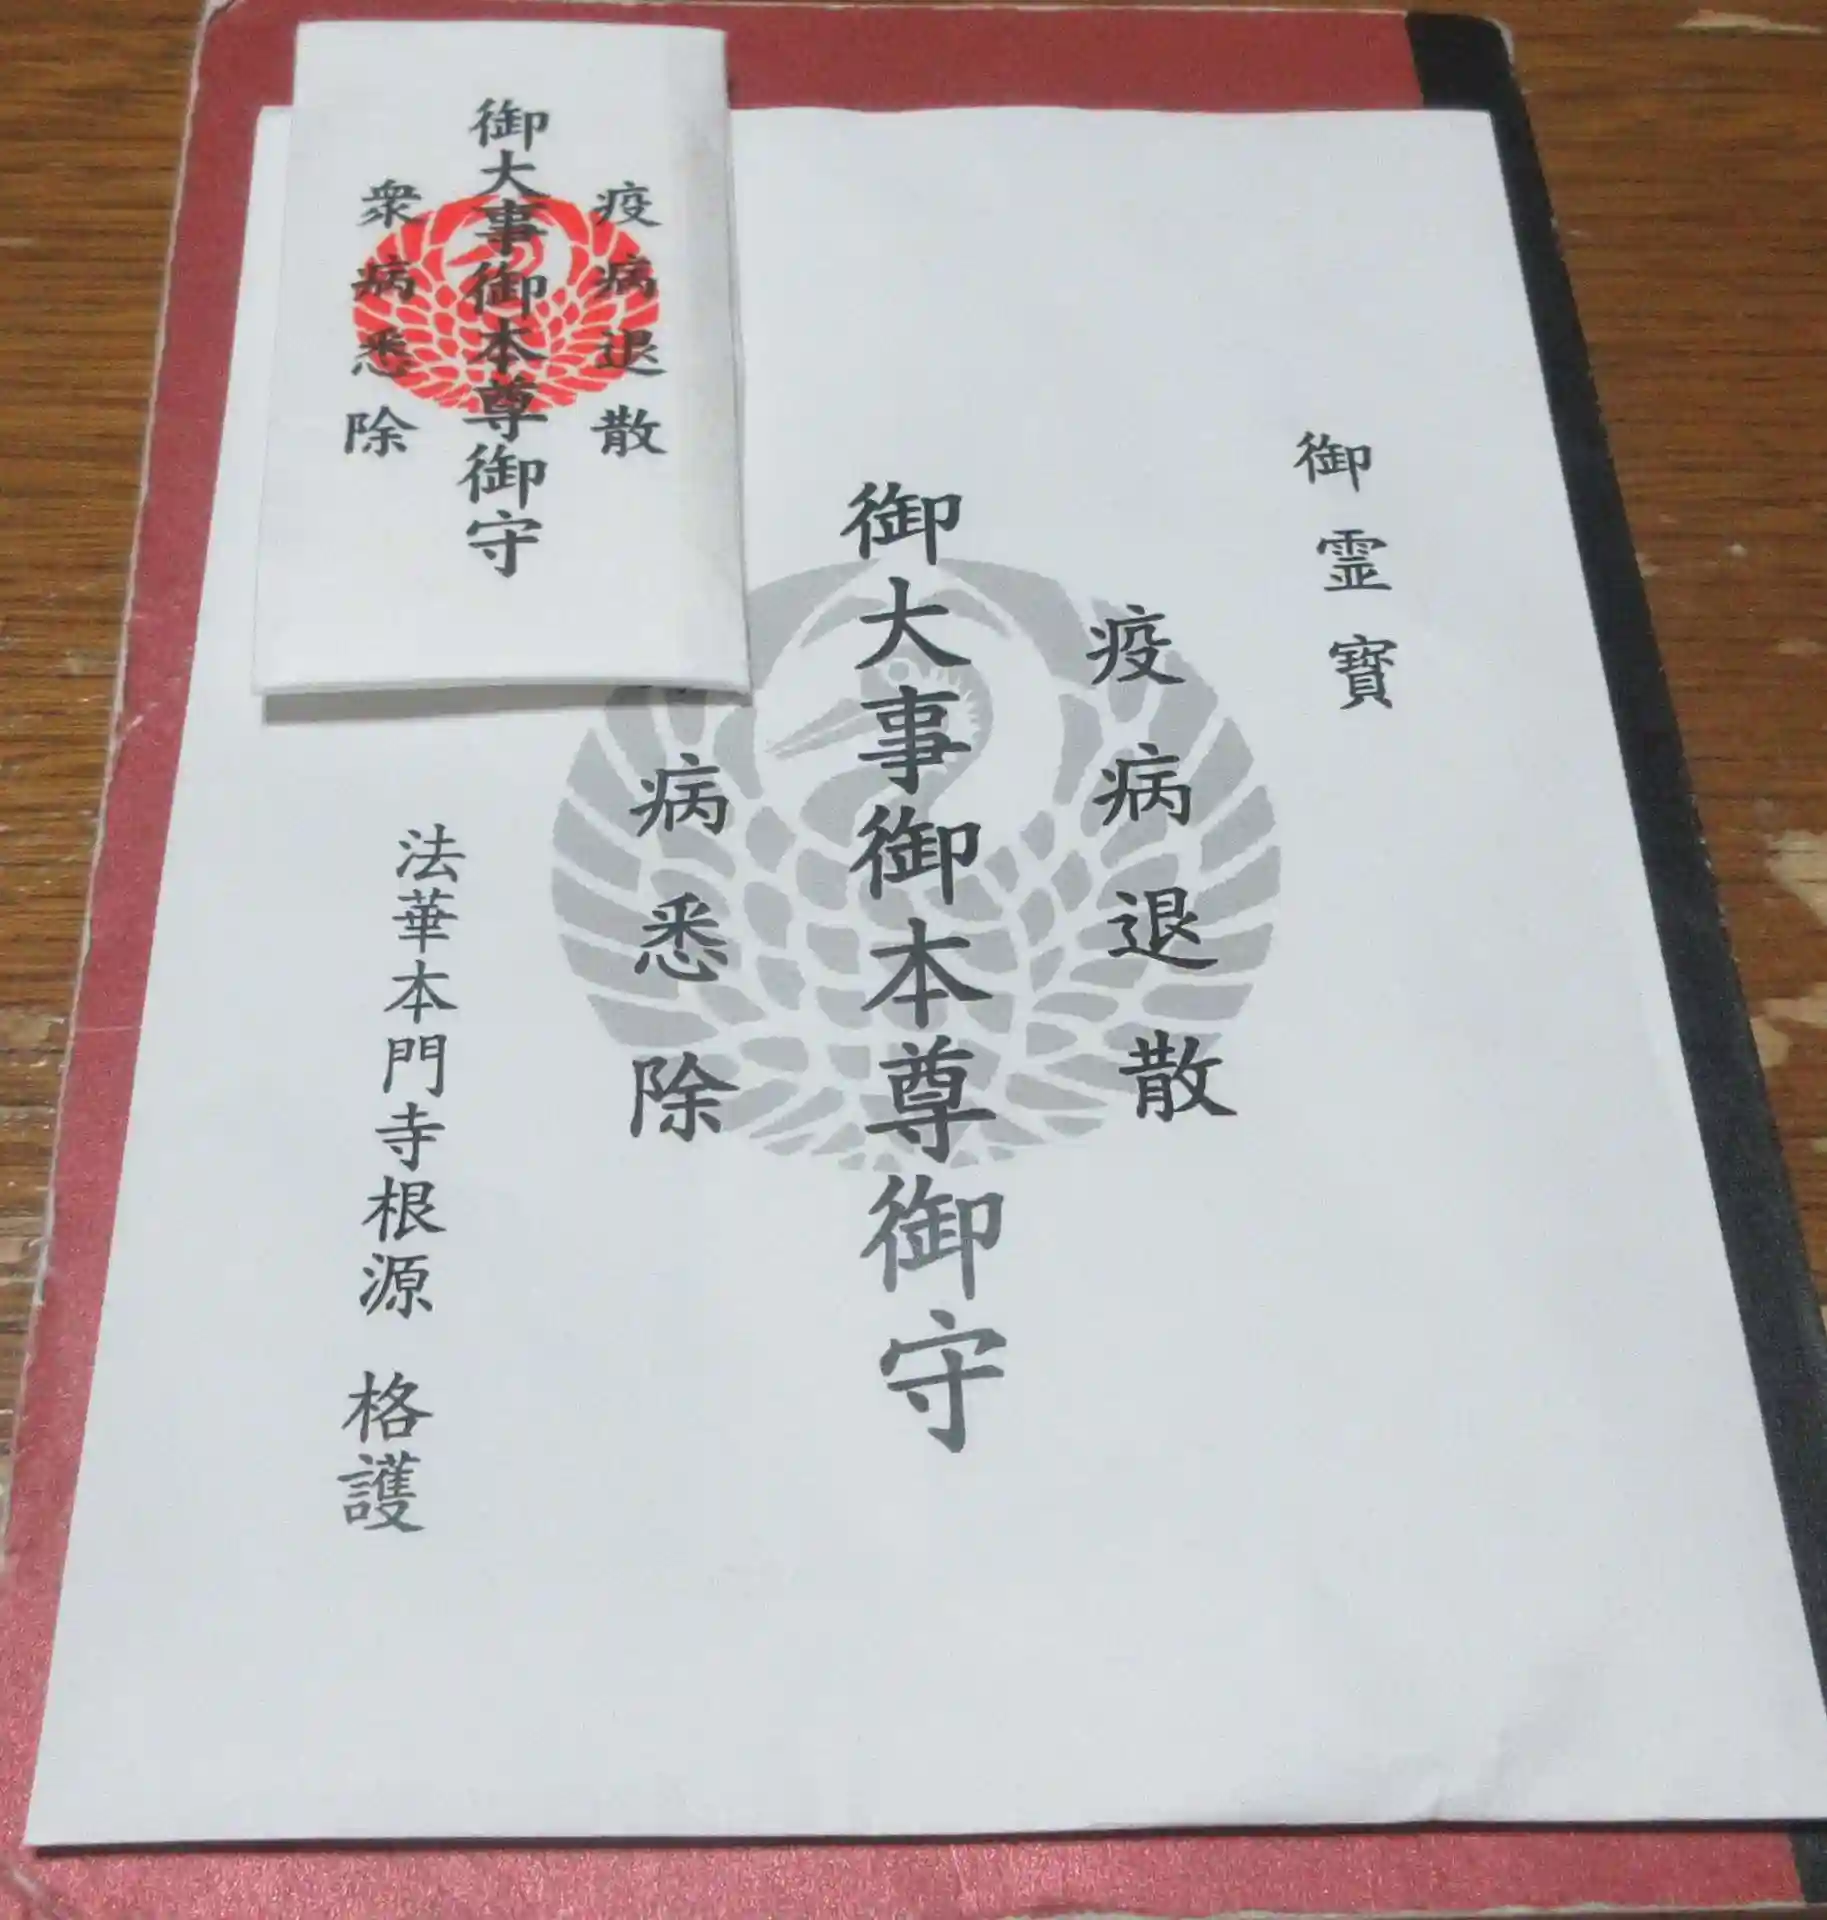 疫病退散
御大事御本尊御守
衆病悉除
御霊寶
疫病退散
御大事御本尊御守
病悉除
法華本門寺根源 格護